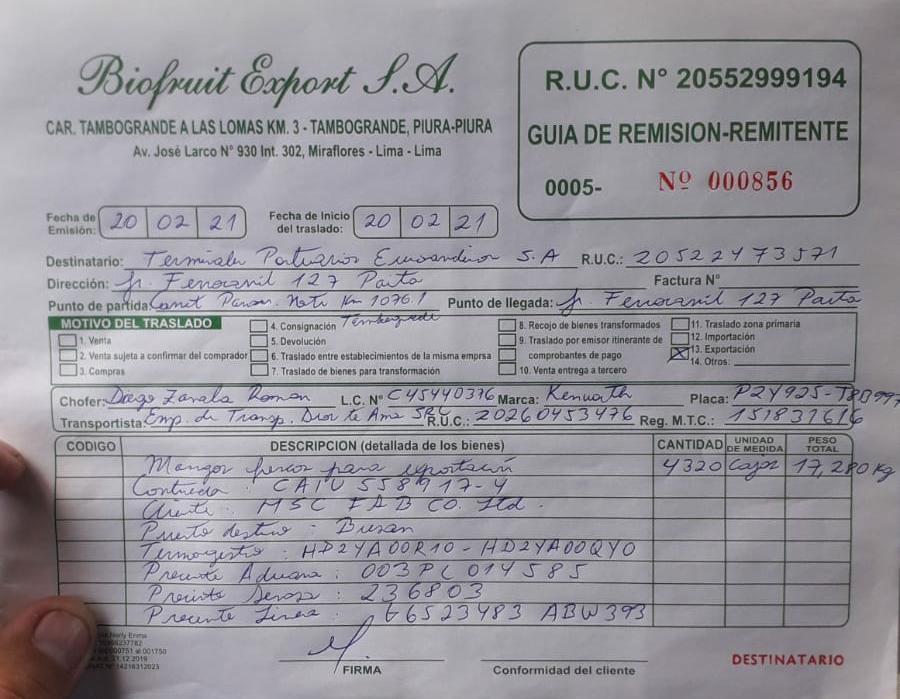 Biofruit Export S.A.
CAR. TAMBOGRANDE A LAS LOMAS KM. 3 - TAMBOGRANDE, PIURA-PIURA
Av. José Larco N° 930 Int. 302, Miraflores - Lima - Lima
R.U.C. N° 20552999194
GUIA DE REMISION-REMITENTE
0005- Nº 000856
Fecha de Emisión: 20 02 21 Fecha de Inicio del traslado: 20 02 21
Destinatario: Terminales Portuarios Euroandinos S.A R.U.C.: 20522473571
Dirección: Jr. Ferrocarril 127 Paita Factura N°
Punto de partida: Km 1076.1 Punto de llegada: Jr. Ferrocarril 127 Paita
Tambogrande
MOTIVO DEL TRASLADO
1. Venta
2. Venta sujeta a confirmar del comprador
3. Compras
4. Consignación
5. Devolución
6. Traslado entre establecimientos de la misma emprsa
7. Traslado de bienes para transformación
8. Recojo de bienes transformados
9. Traslado por emisor itinerante de
comprobantes de pago
10. Venta entrega a tercero
11. Traslado zona primaria
12. Importación
13. Exportación
14. Otros:
Chofer: Diego Zavala Roman L.C. N° C45440376 Marca: Kenworth Placa: P2Y925-
Transportista: Emp. de Transp. Dios te Ama SRL R.U.C.: 20260453476 Reg. M.T.C.: 151831616
CODIGO DESCRIPCION (detallada de los bienes) CANTIDAD UNIDAD DE MEDIDA PESO TOTAL
Mangos frescos para exportación 4320 Cajas 17,280 Kg
Contenedor : CAIU 558917-4
Cliente : MSC FAB CO. Ltd.
Puerto destino : Busan
Termoregistro : HD2YA00R10 - HD2YA00QY0
Precinto Aduana : 003PL014585
Precinto Senasa : 236803
Precinto Linea : 66523483 ABW393
FIRMA
Conformidad del cliente
DESTINATARIO